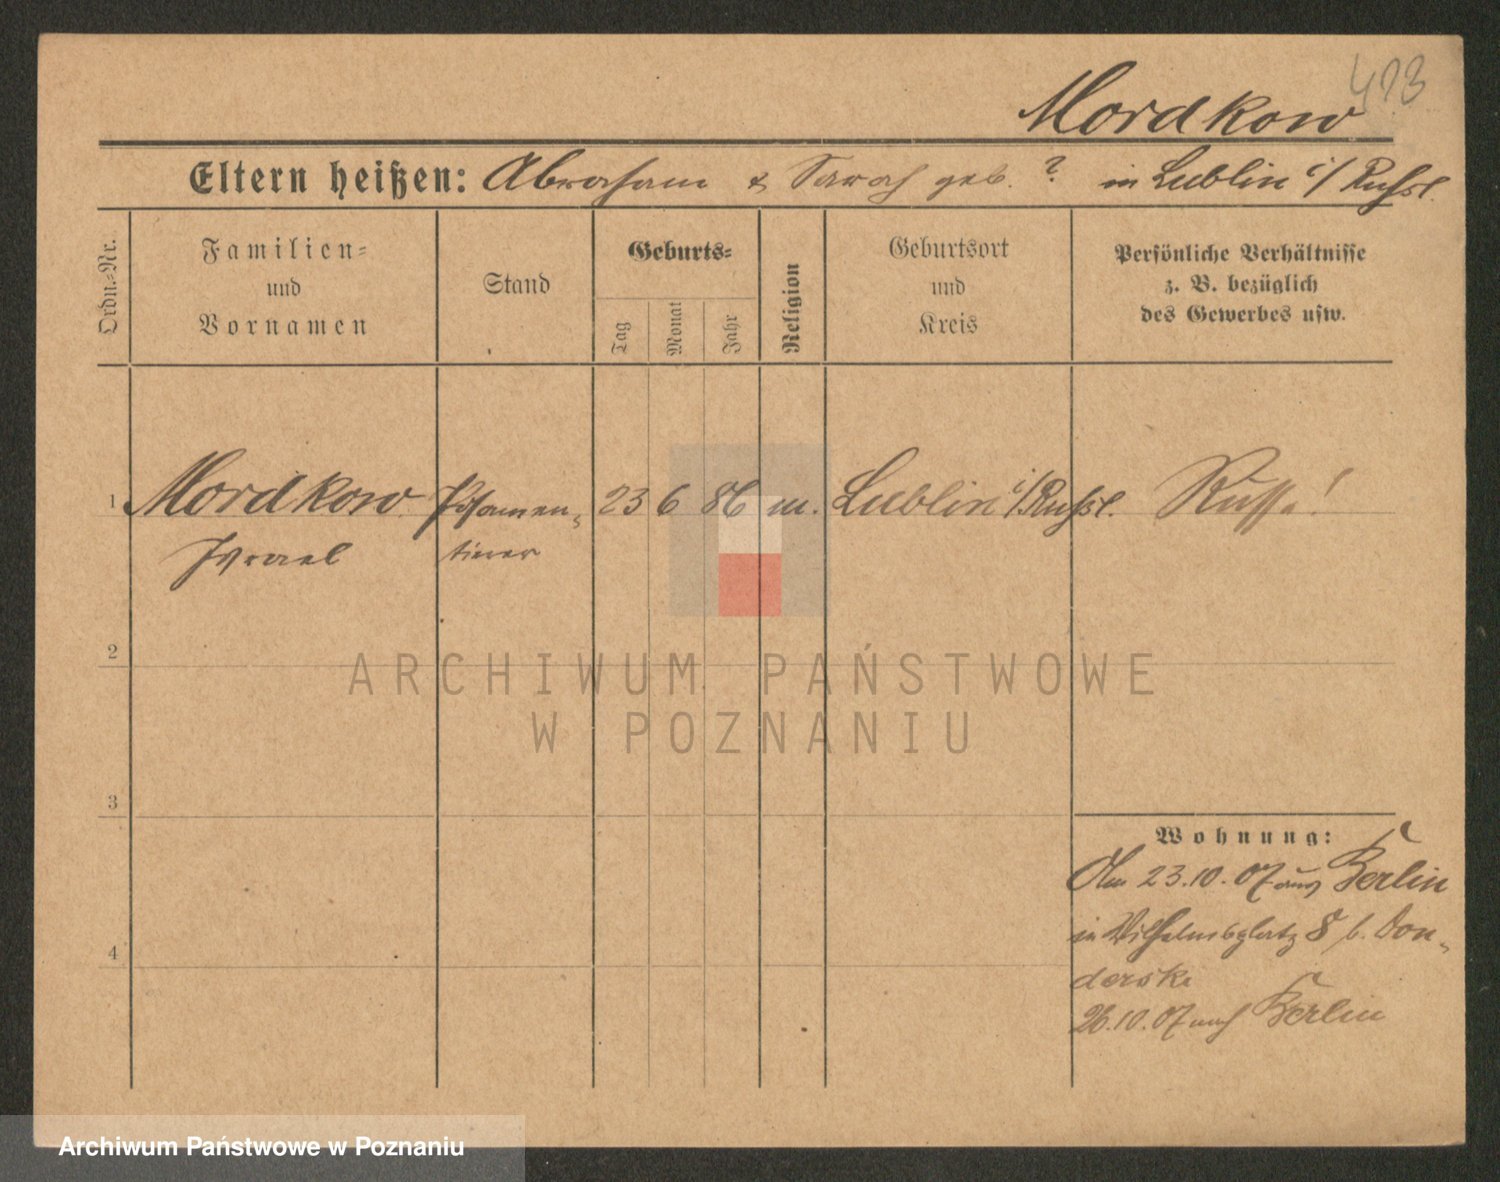 413
Mordkow
Eltern heißen: Abraham & Sarah geb. ? in Lublin i/ Rußl.
Ordn.-Nr.
Familien-
und
Vornamen
Stand
Geburts-
Tag
Monat
Jahr
Religion
Geburtsort
und
Kreis
Persönliche Verhältnisse
z. B. bezüglich
des Gewerbes usw.
1 Mordkow Posamen- 23 6 86 m. Lublin i/Rußl. Russe!
Israel tierer
2
ARCHIWUM PAŃSTWOWE
W POZNANIU
3
Wohnung:
Am 23.10.07 aus Berlin
in Wilhelmsplatz 8 b. Don-
derski
4
26.10.07 nach Berlin
Archiwum Państwowe w Poznaniu